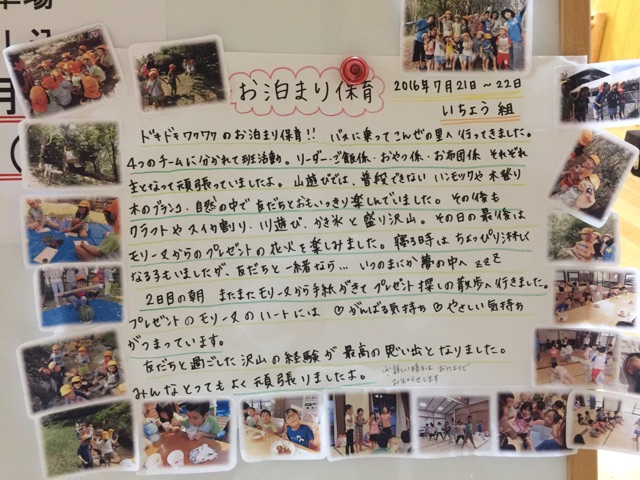 お泊まり保育
2016年7月21日～22日
いちょう組
ドキドキワクワクのお泊まり保育!! バスに乗ってこんぜの里へ行ってきました。
4つのチームに分かれて班活動。リーダー・ご飯係・おやつ係・お布団係 それぞれ
主となって頑張っていましたよ。山遊びでは、普段できない ハンモックや木登り
木のブランコ、自然の中で友だちとおもいっきり楽しんでいました。その後も
クラフトやスイカ割り・川遊び・かき氷と盛り沢山。その日の最後は
モリーヌからのプレゼントの花火を楽しみました。寝る時はちょっぴり淋しく
なる子もいましたが、友だちと一緒なら… いつのまにか夢の中へ zzz
2日目の朝 またまたモリーヌから手紙がきて プレゼント探しの散歩へ行きました。
プレゼントのモリーヌのハートには ♡がんばる気持ち ♡やさしい気持ち
がつまっています。
友だちと過ごした沢山の経験が 最高の思い出となりました。
みんなとってもよく頑張りましたよ。
※詳しい様子は おたよりで
お知らせします